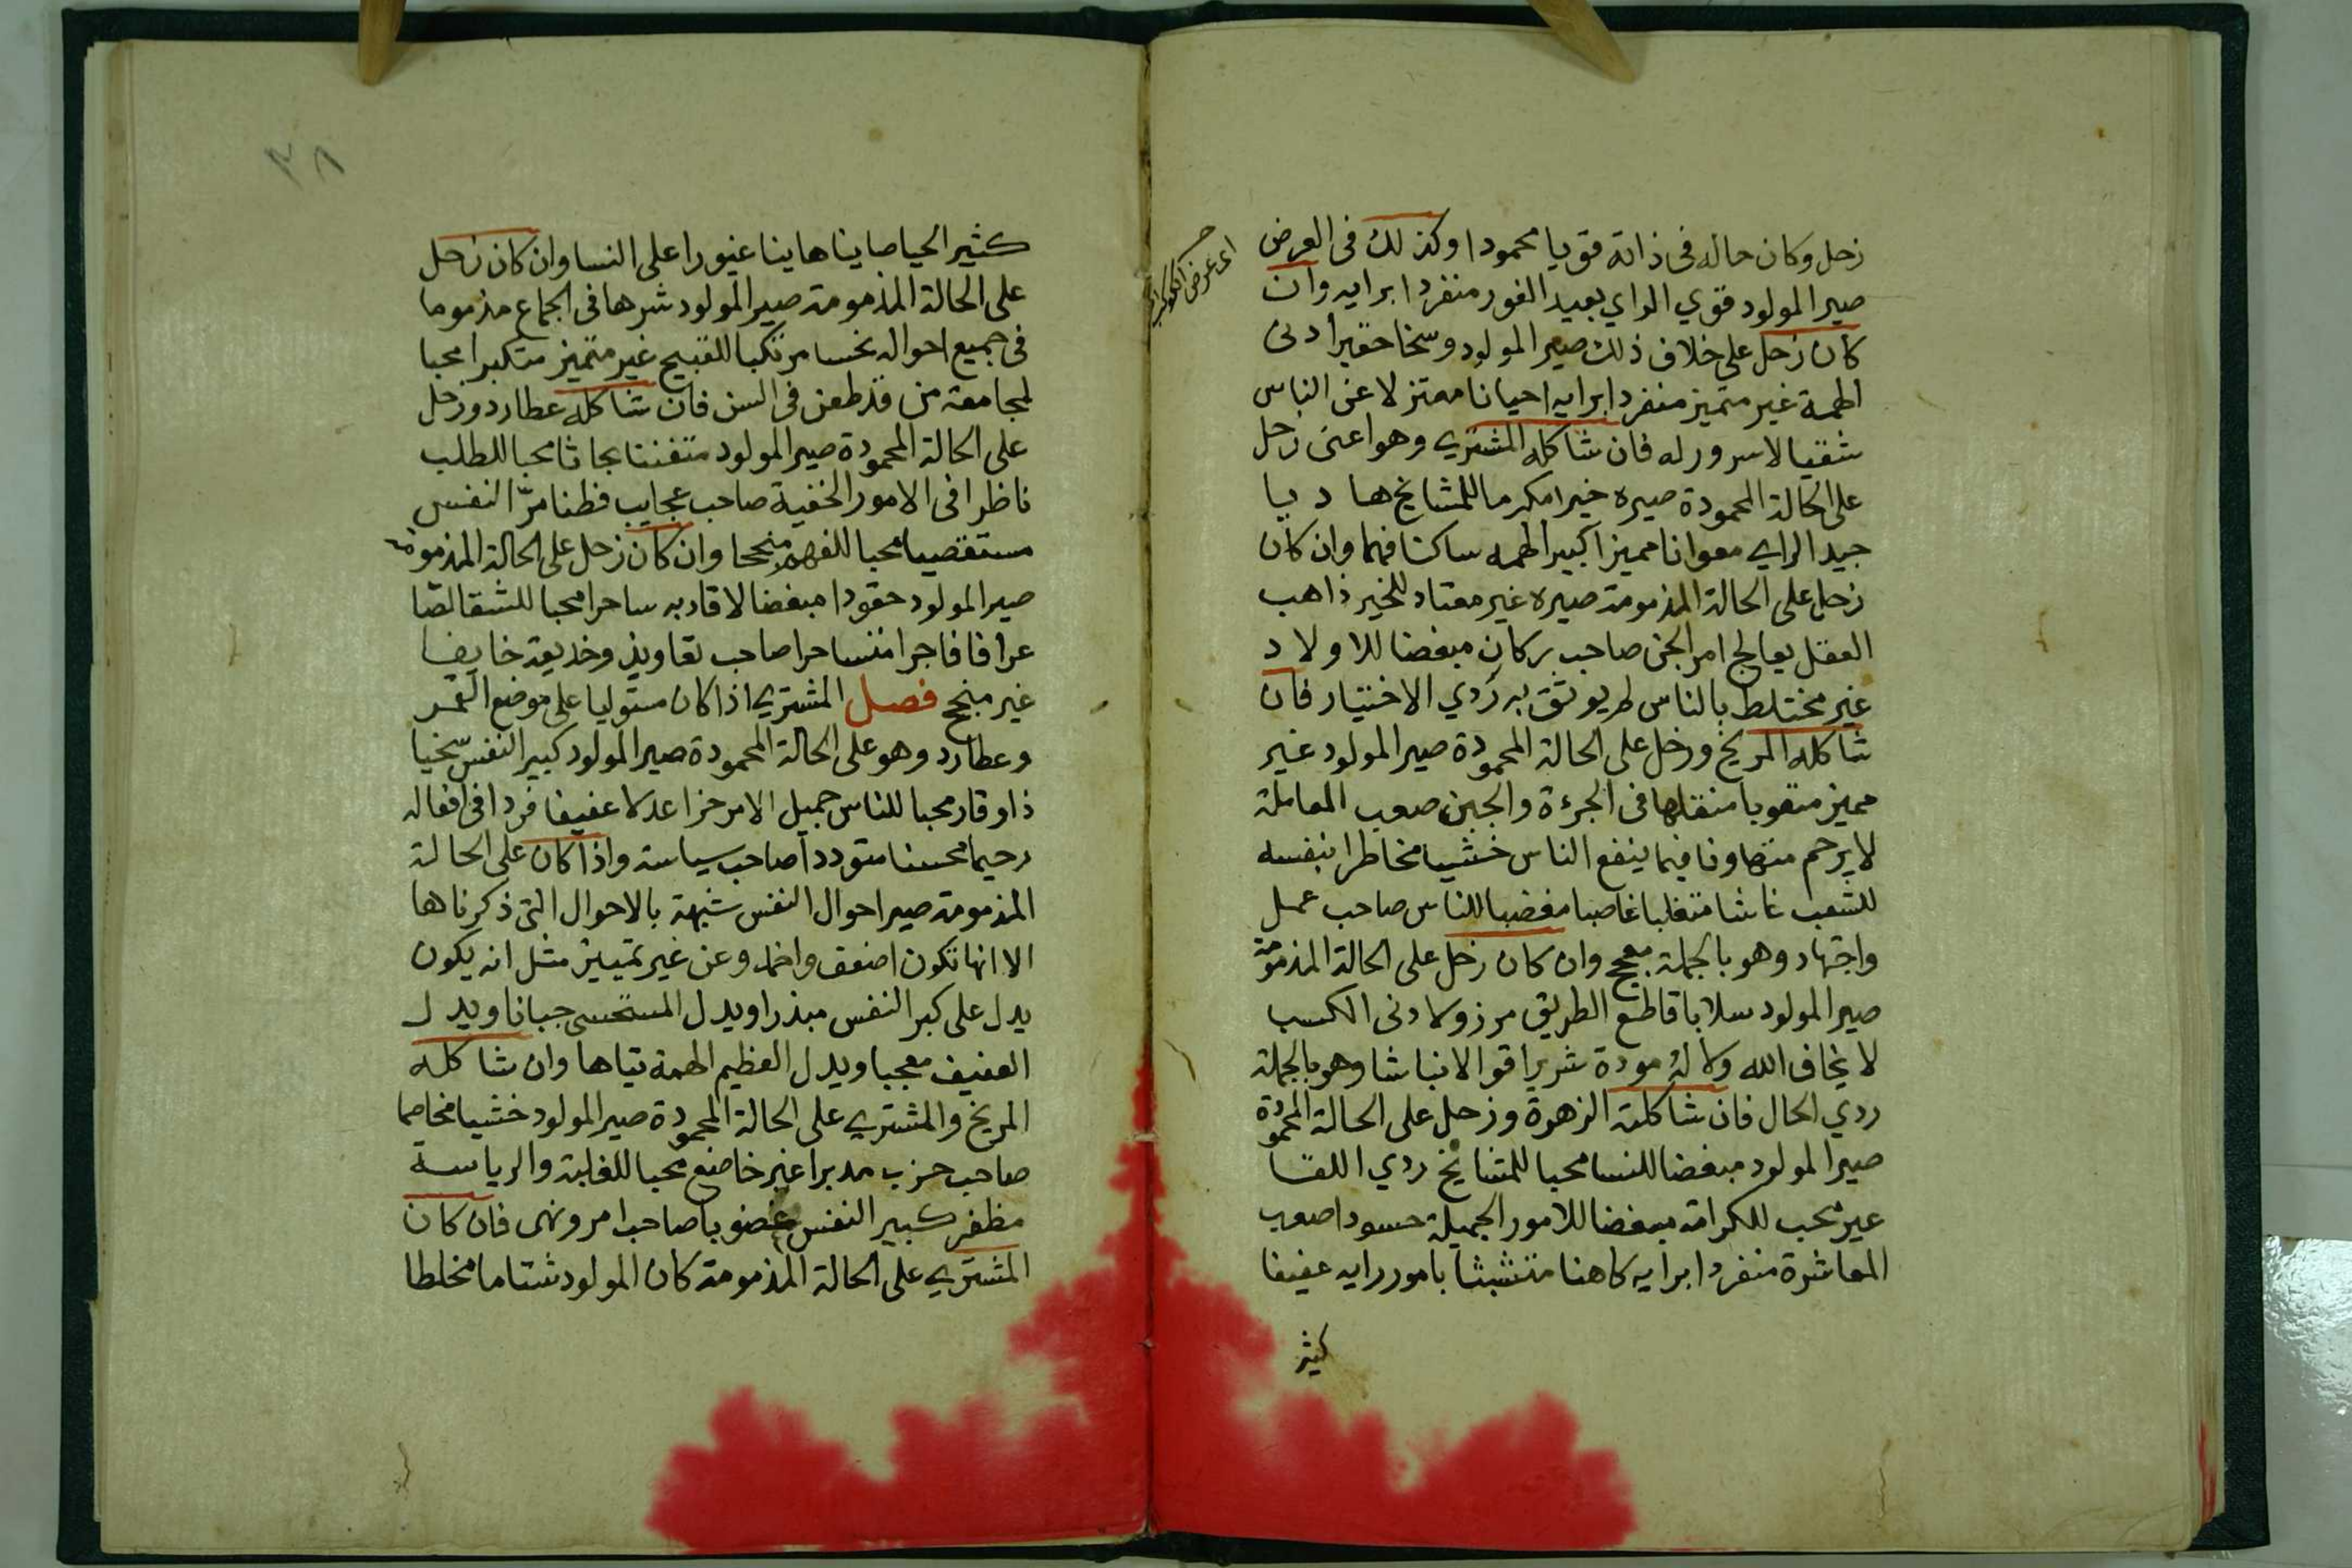 زحل وكان حاله فى ذاته قويا محمودا وكذلك فى العرض
صير المولود قوي الراي بعيد الغور منفردا برايه وان
كان زحل على خلاف ذلك صير المولود وسخا حقيرا دنى
الهمة غير متميز منفردا برايه احيانا معتزلا عن الناس
شقيا لا سرور له فان شاكله المشتري وهو اعنى زحل
على الحالة المحمودة صيره خيرا مكرما للمشايخ هاديا
جيد الراي معوانا مميزا كبير الهمه ساكنا فهما وان كان
زحل على الحالة المذمومة صيره غير معتاد للخير ذاهب
العقل يعالج امر الجن صاحب بركان مبغضا للاولاد
غير مختلط بالناس لم يوثق به ردي الاختيار فان
شاكله المريخ وزحل على الحالة المحمودة صير المولود غير
مميز متعوبا فى الجرءة والجبن صعب المعاملة
لا يرحم متهاونا فيما ينفع الناس خشيا مخاطرا بنفسه
للشعب غاشا متغلبا غاصبا مغضبا للناس صاحب عمل
واجتهاد وهو بالجملة وان كان زحل على الحالة المذمومة
صير المولود سلابا قاطع الطريق مرذولا دنى الكسب
لا يخاف الله ولا له مودة شريرا قوالا نباشا وهو بالجملة
ردي الحال فان شاكلته الزهرة وزحل على الحالة المحمودة
صير المولود مبغضا للنسا محبا للمشايخ ردي اللقا
غير محب للكرامة مبغضا للامور الجميلة حسودا صعب
المعاشرة منفردا برايه كاهنا متشبثا بامور رايه عفيفا
كثير
اى عرض الكوكب
٣٨
كثير الحيا صاينا هاينا غيورا على النسا وان كان زحل
على الحالة المذمومة صير المولود شرها فى الجماع مذموما
فى جميع احواله نحسا مرتكبا للقبيح غير متميز متكبرا محبا
لمجامعة من قد طعن فى السن فان شاكله عطارد وزحل
على الحالة المحمودة صير المولود متفننا بحاثا محبا للطلب
ناظرا فى الامور الخفية صاحب عجايب فطنا مرّ النفس
مستقصيا محبا للفهم منجحا وان كان زحل على الحالة المذمومة
صير المولود حقودا مبغضا لاقاربه ساحرا محبا للشقا لصّا
عرافا فاجرا ساحرا صاحب تعاويذ وخديعة خايفا
غير منجح فصل المشتري اذا كان مستوليا على موضع القمر
وعطارد وهو على الحالة المحمودة صير المولود كبير النفس سخيا
ذا وقار محبا للناس جميل الامر حرا عدلا عفيفا فردا فى افعاله
رحيما محسنا متوددا صاحب سياسة واذا كان على الحالة
المذمومة صير احوال النفس شبهة بالاحوال التى ذكرناها
الا انها تكون اضعف واخمد وعن غير تمييز مثل انه يكون
يدل على كبر النفس مبذرا وبدل المستحسى جبانا وبدل
العفيف معجبا وبدل العظيم الهمة تياها وان شاكله
المريخ والمشتري على الحالة المحمودة صير المولود خشيا مخاصما
صاحب حرب مدبرا غير خاضع محبا للغلبة والرياسة
مظفر كبير النفس غضوبا صاحب امر ونهى فان كان
المشتري على الحالة المذمومة كان المولود شتاما مخلطا